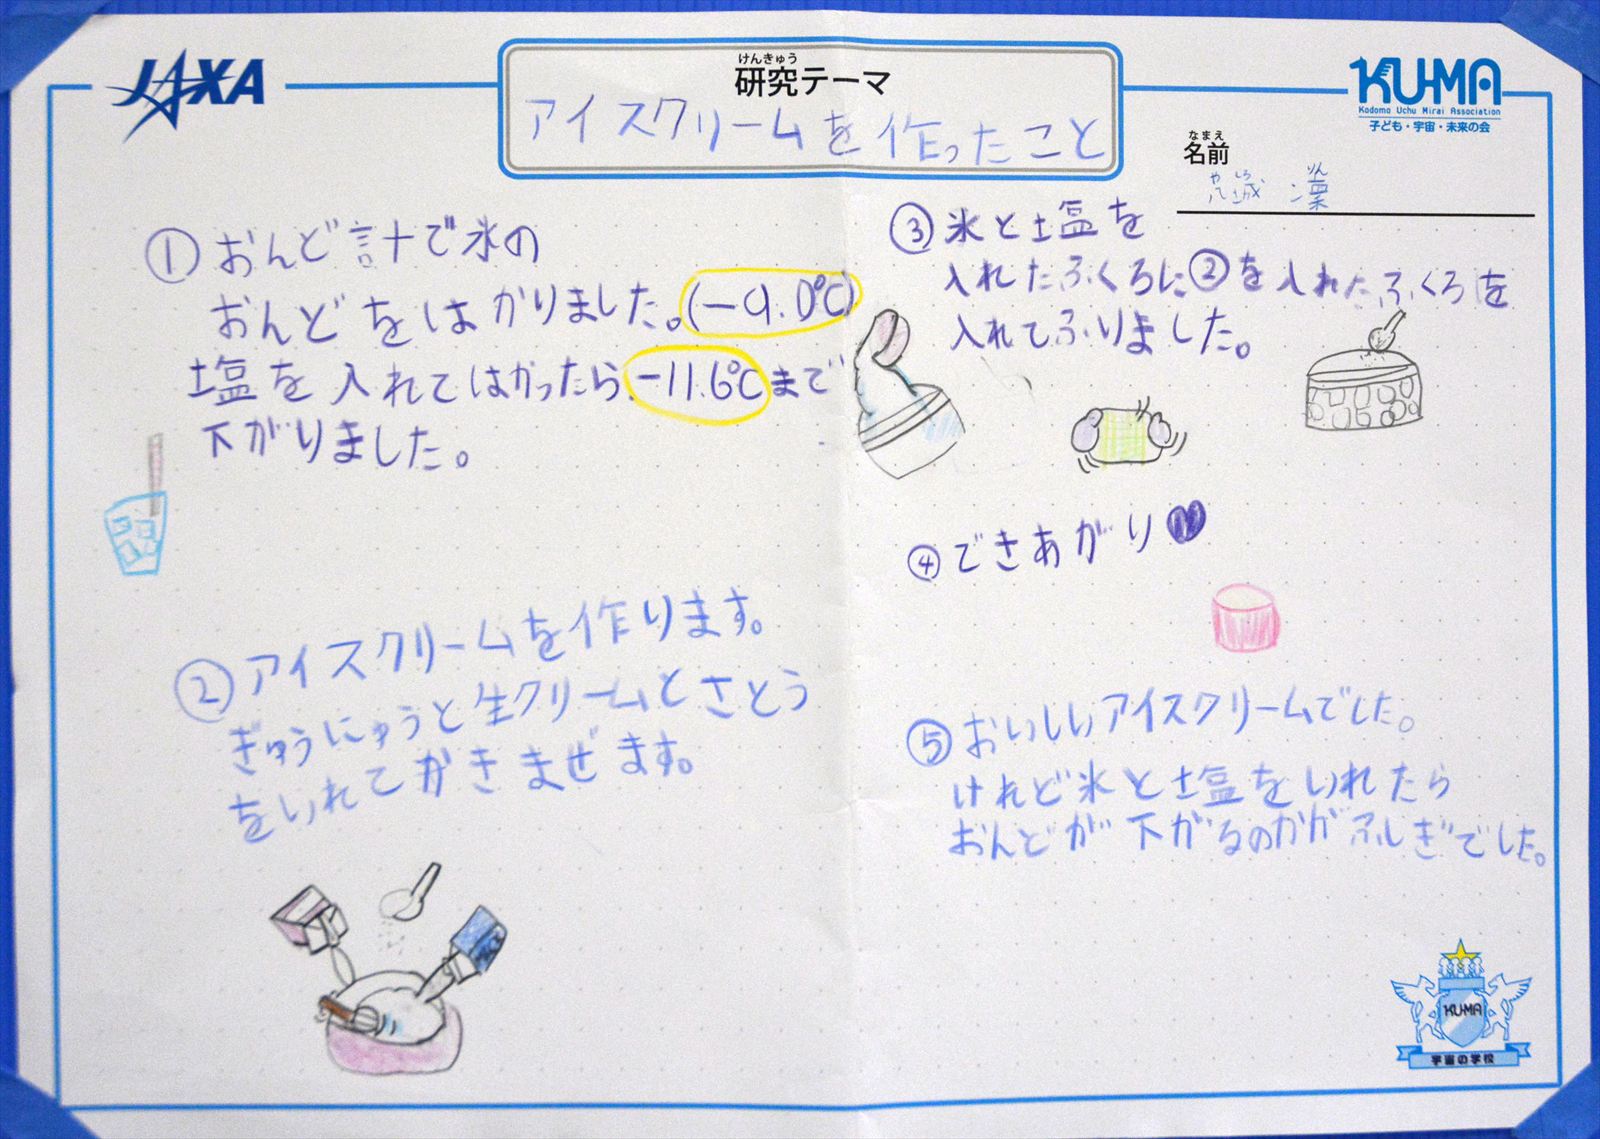 JAXA
けんきゅう
研究テーマ
アイスクリームを作ったこと
KU-MA
Kodomo Uchu Mirai Association
子ども・宇宙・未来の会
なまえ
名前
や しろ りん
八城 凜
①おんど計で氷の
おんどをはかりました。(-9.0℃)
塩を入れてはかったら-11.6℃まで
下がりました。
②アイスクリームを作ります。
ぎゅうにゅうと生クリームとさとう
をいれてかきまぜます。
③氷と塩を
入れたふくろに②を入れたふくろを
入れてふりました。
④できあがり
⑤おいしいアイスクリームでした。
けれど氷と塩をいれたら
おんどが下がるのかがふしぎでした。
KU-MA
宇宙の学校